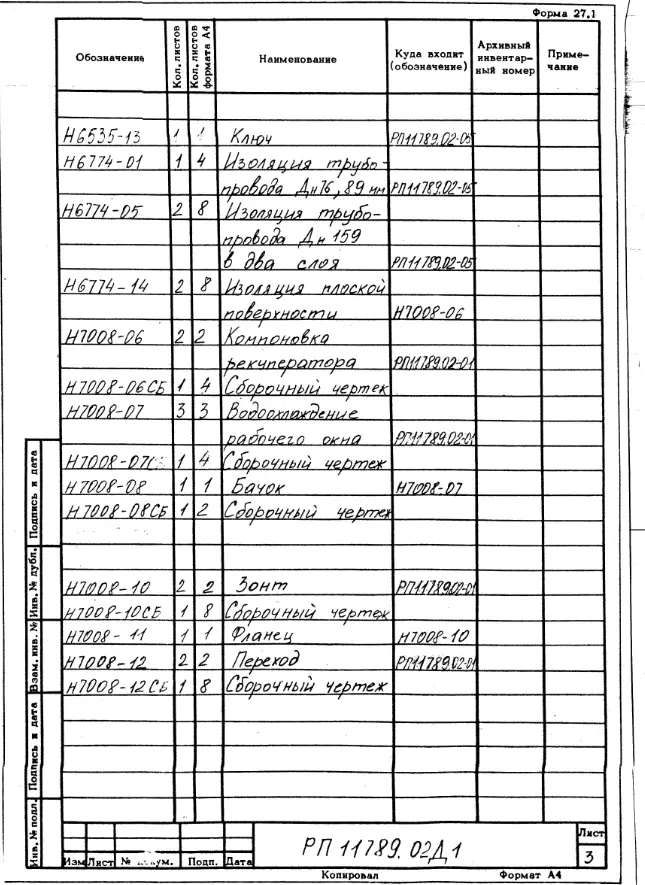 Форма 27.1
Обозначение Кол. листов Кол. листов формата А4 Наименование Куда входит (обозначение) Архивный инвентарный номер Примечание
Н6535-13 1 1 Ключ РП11789.02-05
Н6774-01 1 4 Изоляция трубо-
провода Дн76, 89 мм РП11789.02-05
Н6774-05 2 8 Изоляция трубо-
провода Дн 159
в два слоя РП11789.02-05
Н6774-14 2 8 Изоляция плоской
поверхности Н7008-06
Н7008-06 2 2 Компоновка
рекуператора РП11789.02-01
Н7008-06СБ 1 4 Сборочный чертеж
Н7008-07 3 3 Водоохлаждение
рабочего окна РП11789.02-01
Н7008-07С 1 4 Сборочный чертеж
Н7008-08 1 1 Бачок Н7008-07
Н7008-08СБ 1 2 Сборочный чертеж
Н7008-10 2 2 Зонт РП11789.02-01
Н7008-10СБ 1 8 Сборочный чертеж
Н7008-11 1 1 Фланец Н7008-10
Н7008-12 2 2 Переход РП11789.02-01
Н7008-12СБ 1 8 Сборочный чертеж
Инв. № подл. Подпись и дата Взам. инв. № Инв. № дубл. Подпись и дата
РП 11789.02Д1
Лист
3
Изм Лист № Подп. Дата
Копировал Формат А4